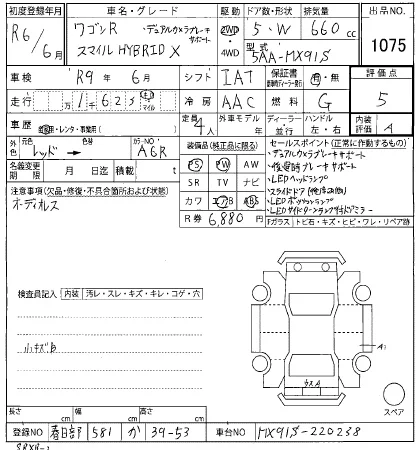 初度登録年月 車名・グレード 駆動 ドア数・形状 排気量 出品NO.
R6/6月 ワゴンR ・デュアルカメラブレーキサポート 2WD 5・W 660cc 1075
スマイル HYBRID X ・4WD 型式 5AA-MX91S
車検 R9年6月 シフト IAT 保証書 有・無 評価点
走行 万1千625 キロ・マイル 冷房 AAC 燃料 G 5
車歴 自家用・レンタ・事業用( ) 定員 4人 外車モデル ディーラー・並行 ハンドル 左・右 内装評価 A
外色 レッド → 色替 カラーNO A6R 装備品(純正品に限る) セールスポイント(正常に作動するもの)
名義変更期限 月 日迄 積載 t PS PW AW ・デュアルカメラブレーキサポート
注意事項(欠品・修復・不具合箇所および状態) SR TV ナビ ・後退時ブレーキサポート
オーディオレス カワ エアB ABS ・LEDヘッドランプ
R券 6,880円 ・スライドドア
・LEDポジションランプ
・LEDサイドターンランプ付ドアミラー
Fガラス トビ石・キズ・ヒビ・ワレ・リペア跡
検査員記入 内装 汚レ・スレ・キズ・キレ・コゲ・穴
小キズ
A1
スペア
長さ cm 幅 cm 高さ cm
登録NO 春日部 581 か 39-53 車台NO MX91S-220238